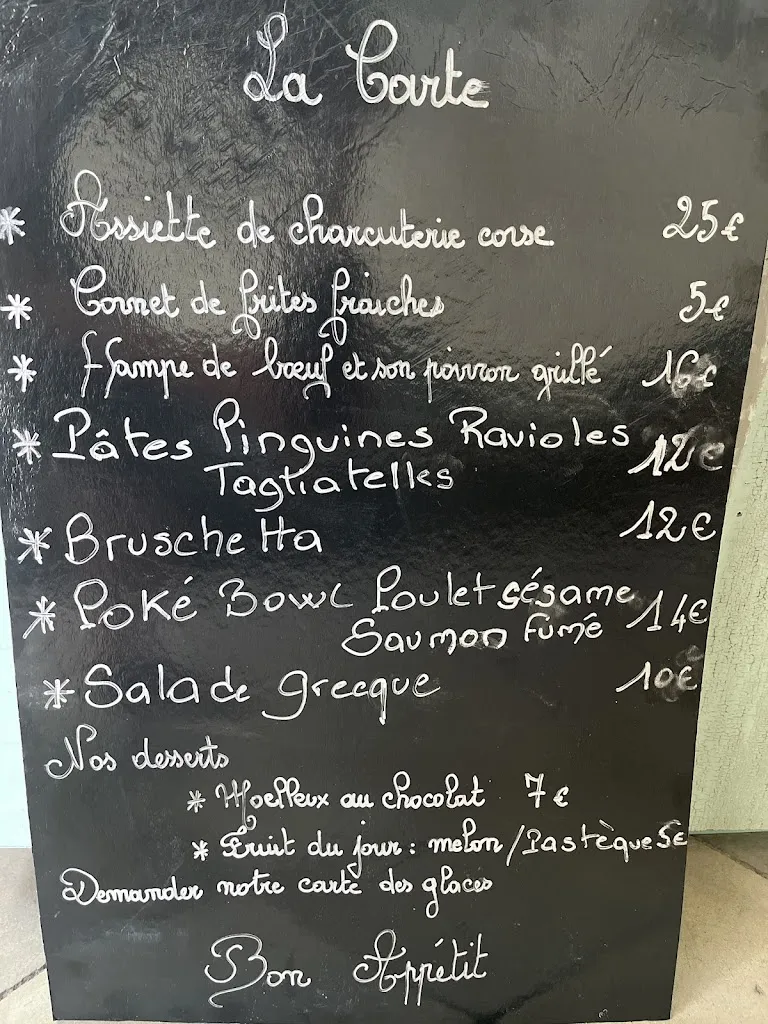 La Carte
* Assiette de charcuterie corse 25€
* Cornet de frites fraiches 5€
* Hampe de bœuf et son poivron grillé 16€
* Pâtes Pinguines Ravioles 12€
Tagliatelles
* Bruschetta 12€
* Poké Bowl Poulet sésame 14€
Saumon Fumé
* Salade grecque 10€
Nos desserts
* Moelleux au chocolat 7€
* Fruit du jour : melon/Pastèque 5€
Demander notre carte des glaces
Bon Appétit